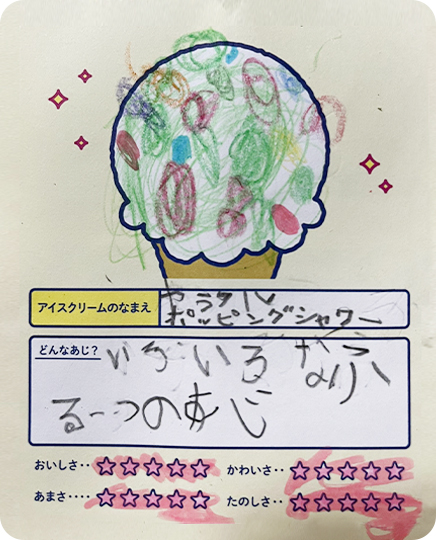 アイスクリームのなまえ
カラフル
ポッピングシャワー
どんなあじ？
いろいろなふ
るーつのあじ
おいしさ‥ ☆☆☆☆☆ かわいさ‥ ☆☆☆☆☆
あまさ‥‥ ☆☆☆☆☆ たのしさ‥ ☆☆☆☆☆